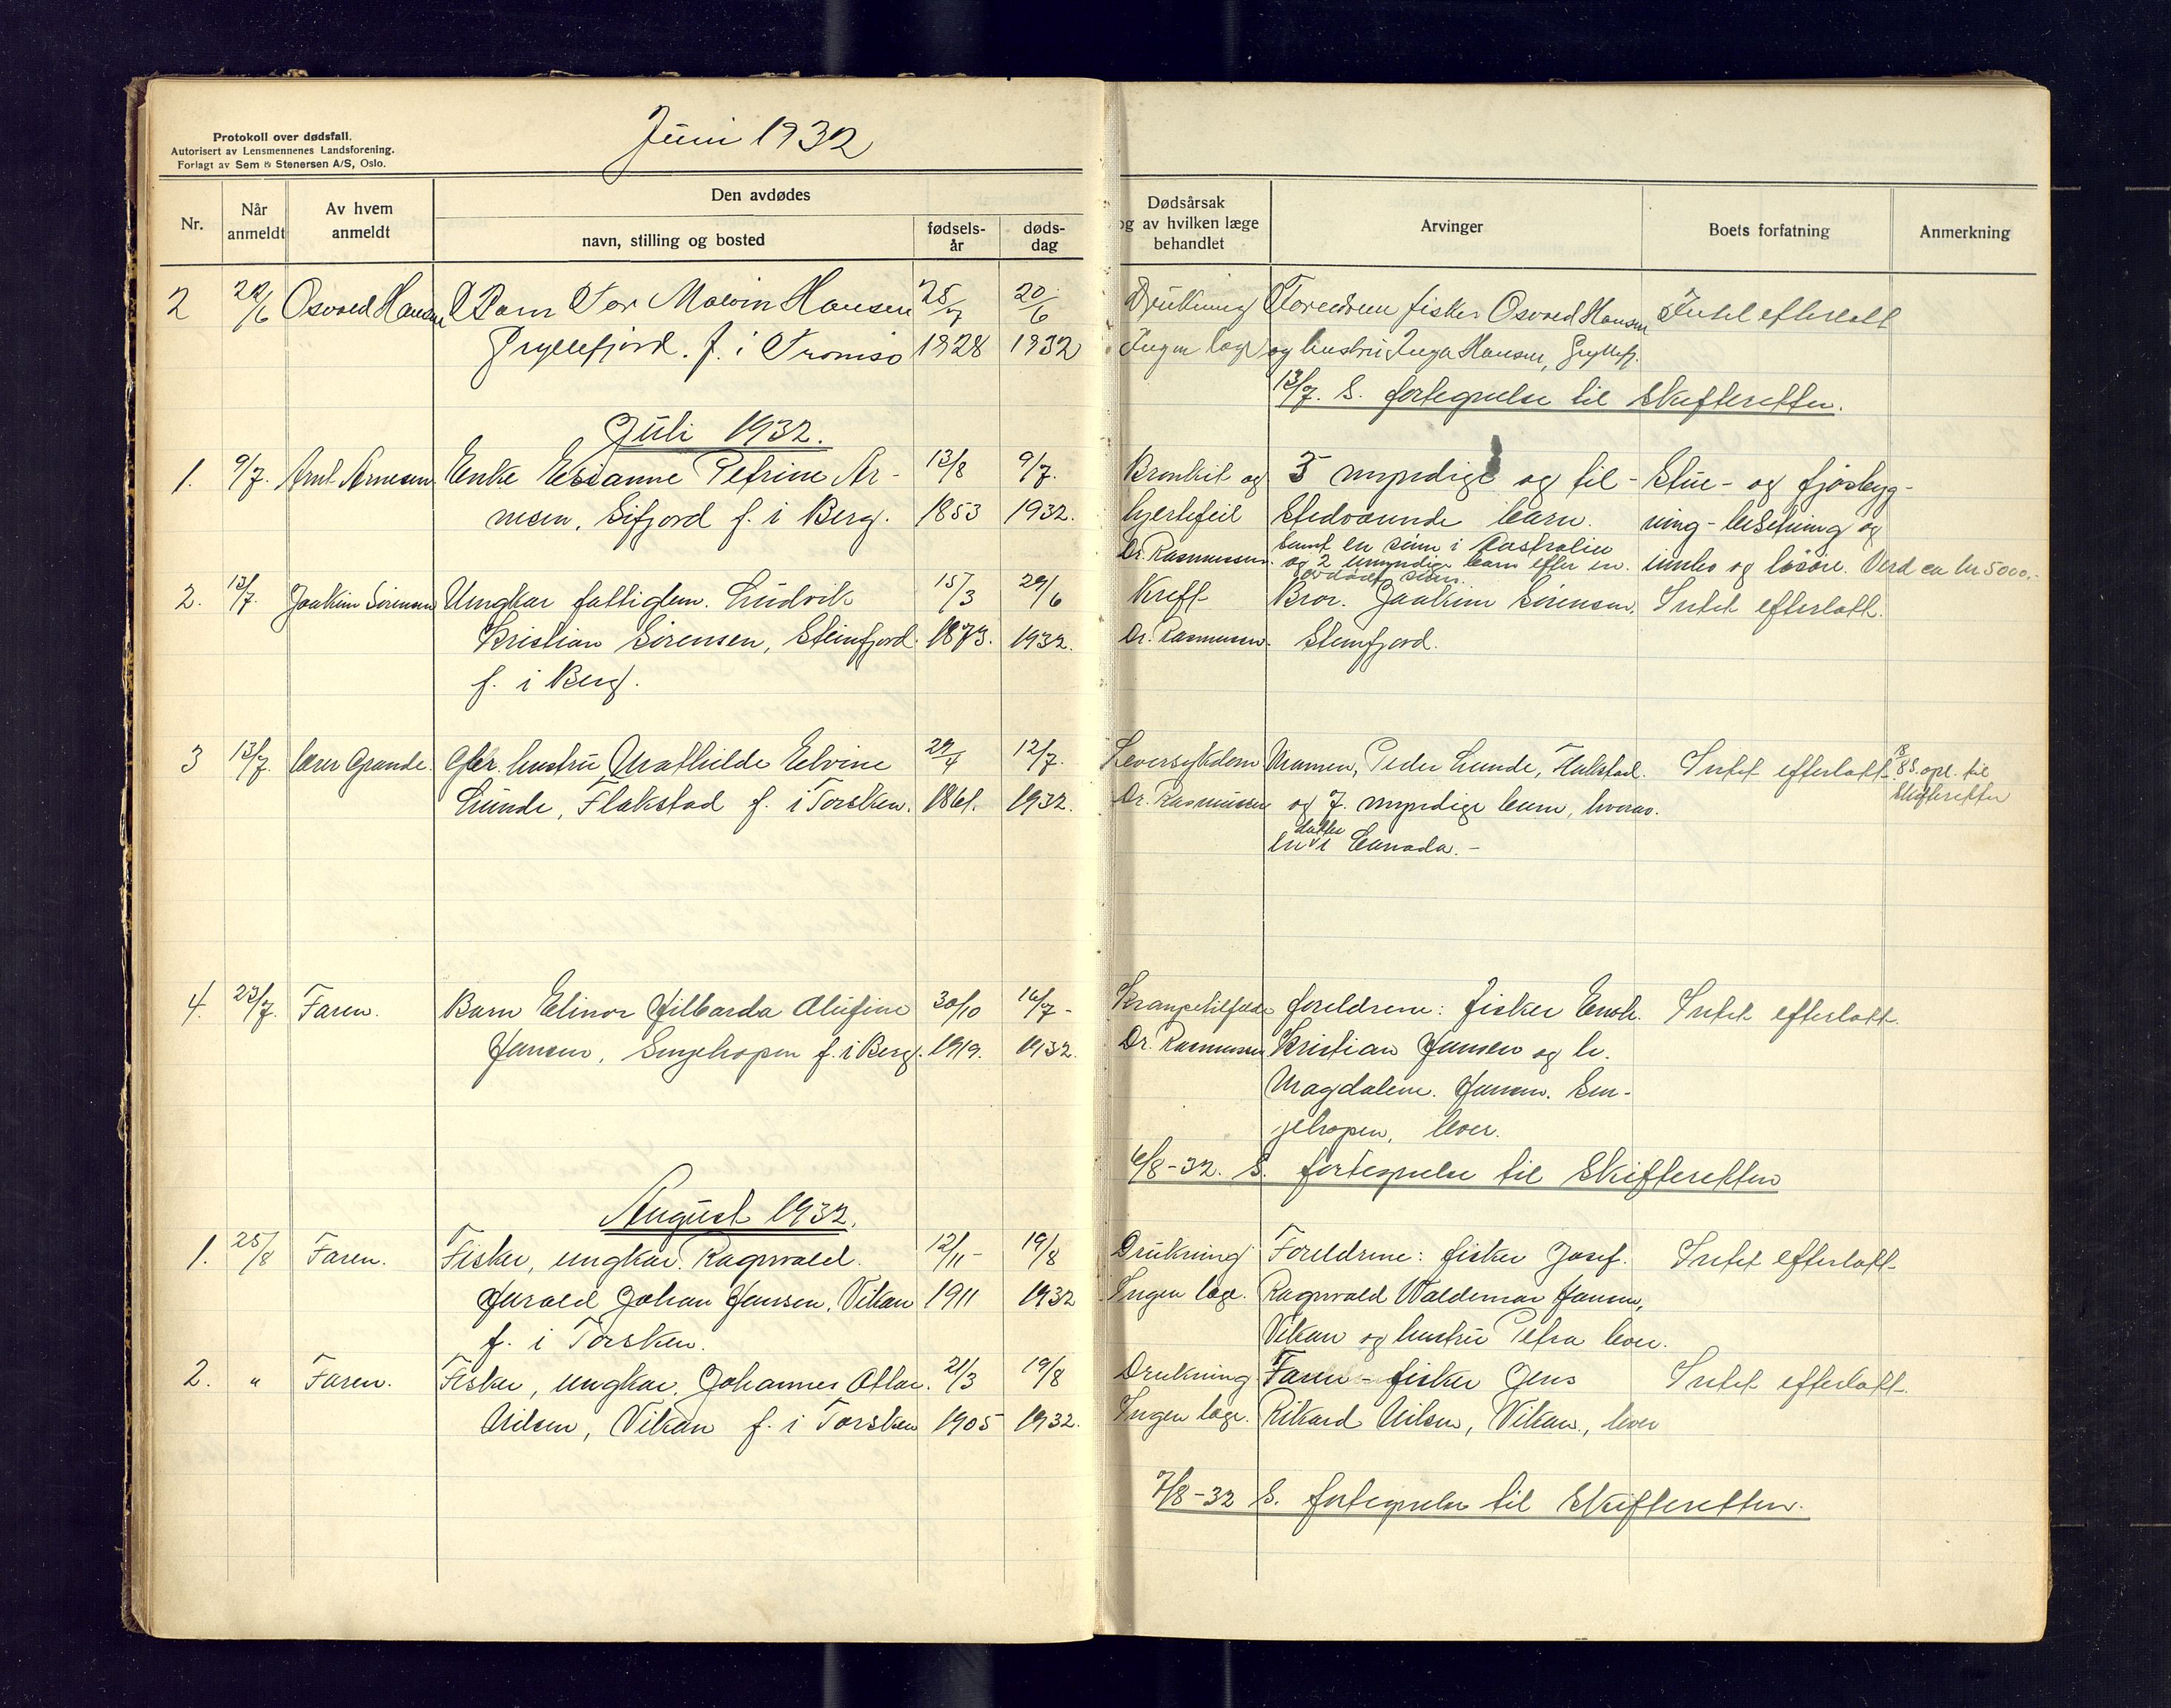 Protokoll over dødsfall.
Autorisert av Lensmennenes Landsforening.
Forlagt av Sem & Stenersen A/S, Oslo.
Juni 1932
Nr.
Når anmeldt
Av hvem anmeldt
Den avdødes
navn, stilling og bosted
fødsels-år
døds-dag
Dødsårsak
og av hvilken læge
behandlet
Arvinger
Boets forfatning
Anmerkning
2 22/6 Osvald Hansen Barn Tor Malvin Hansen 25/7 20/6 Drukning Foreldrene fisker Osvald Hansen Intet efterlatt
Gryllefjord. f. i Tromsø 1928 1932 Ingen læge og hustru Inga Hansen, Gryllefj.
13/7. S. fortegnelse til Skifteretten.
Juli 1932.
1. 9/7. Arnt Arnesen Enke Petrine Ar- 13/8 9/7. Bronkit og 5 myndige og til- Stue- og fjøsbyg-
nesen, Sifjord f. i Berg. 1853 1932. hjertefeil stedværende barn. ning - besetning og
Dr. Rasmussen. samt en sønn i Australien innbo og løsøre. Verd ca kr 5000.-
og 2 umyndige barn efter en
avdød sønn.
2. 13/7. Joakim Sørensen Ungkar fattiglem. Ludvik 15/3 29/6 Kreft Bror. Joakim Sørensen, Intet efterlatt.
Kristian Sørensen, Steinfjord. 1873. 1932. Dr. Rasmussen. Steinfjord.
f. i Berg.
3 13/7. lærer Grande. Gbr. hustru Mathilde Elvine 29/4 12/7. Leversykdom Mannen, Peder Lunde, Flakstad. Intet efterlatt. 8/8 S. opl. til
Lunde, Flakstad f. i Torsken. 1861. 1932. Dr. Rasmussen og 7. myndige barn, hvorav. Skifteretten
datter
en i Canada. -
4. 23/7. Faren. Barn Elinor Hilbarda Olufine 30/10 16/7- Krampetilfelde foreldrene: fisker Enok. Intet efterlatt.
Jensen, Senjehopen f. i Berg. 1919. 1932. Dr. Rasmussen Kristian Jensen og h.
Magdalene. Jensen. Sen-
jehopen, lever.
6/8-32. S. fortegnelse til Skifteretten
August 1932.
1. 25/8 Faren. Fisker, ungkar. Ragnvald. 12/11- 19/8 Drukning Foreldrene: fisker Josef. Intet efterlatt
Harald Johan Jenssen, Vikan 1911 1932 Ingen læge. Ragnvald Waldemar Jensen,
f. i Torsken. Vikan og hustru Petra lever.
2. " Faren. Fisker, ungkar. Johannes Ottar. 21/3 19/8 Drukning Faren - fisker Jens Intet efterlatt.
Nilsen, Vikan f. i Torsken 1905 1932. Ingen læge. Rikard Nilsen, Vikan., lever
7/8-32 S. fortegnelse til Skifteretten.